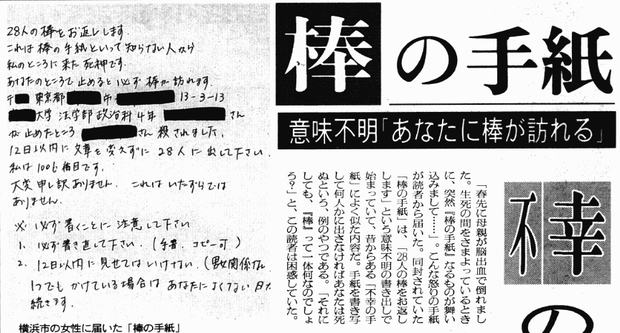 28人の棒をお返しします。
これは棒の手紙といって知らない人から
私のところに来た死神です。
あなたのところで止めると必ず棒が訪れます。
〒 東京都 市 13-3-13
大学 法学部 政治科4年 さん
が止めたところ さん 殺されました。
12日以内に文章を変えずに28人に出して下さい。
私は1006番目です。
大変申し訳ありません。これはいたずらでは
ありません。
※ 必ず書くことに注意して下さい
1. 必ず書き直して下さい。(手書、コピー可)
2. 12日以内に見せてはいけない。(男女関係なし
1つでもかけている場合はあなたによくない日が
続きます。
横浜市の女性に届いた「棒の手紙」
棒の手紙
意味不明「あなたに棒が訪れる」
「春先に母親が脳出血で倒れまし
た。生死の間をさまよっているとき
に、突然『棒の手紙』なるものが舞い
込みまして……」。こんな怒りの手紙
が読者から届いた。同封されていた
「棒の手紙」は、「28人の棒をお返し
します」という意味不明の書き出しで
始まっていて、昔からある「不幸の手
紙」によく似た内容だ。手紙を書き写
して何人かに出さなければあなたは死
ぬという、例のやつである。「それに
しても、『棒』って一体何なのでしょ
う?」と、この読者は困惑していた。
の